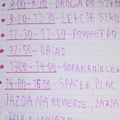 8:00-8:20- DROGA DO SZKO
8:20-12:30- LEKCJE SZKO
12:30-12:50- POWRÓT DO
12:50- OBIAD
13:00-14:00- ODRABIANIE LEK
14:00-16:00- SPACER, PLAC
JAZDA NA ROWERZE, JAZDA